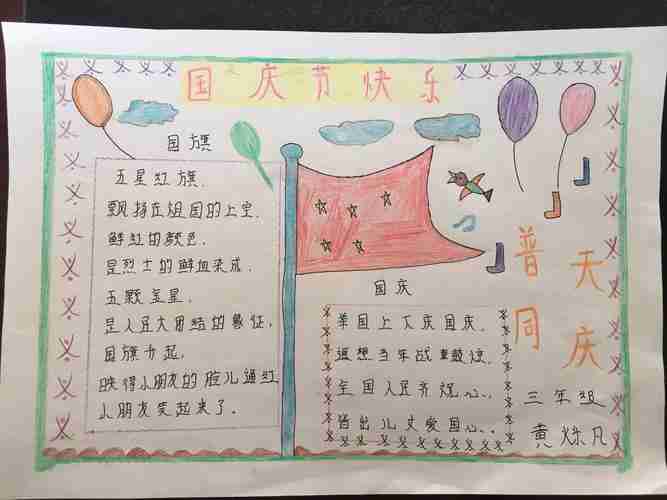 国庆节快乐
国旗
五星红旗.
飘扬在祖国的上空.
鲜红的颜色.
是烈士的鲜血染成.
五颗金星.
是人民大团结的象征,
国旗升起.
映得小朋友的脸儿通红
小朋友笑起来了.
国庆
举国上下庆国庆.
遥想当年战
全国人民齐
出儿女爱国心..
普天
同庆
三年组
黄烁凡